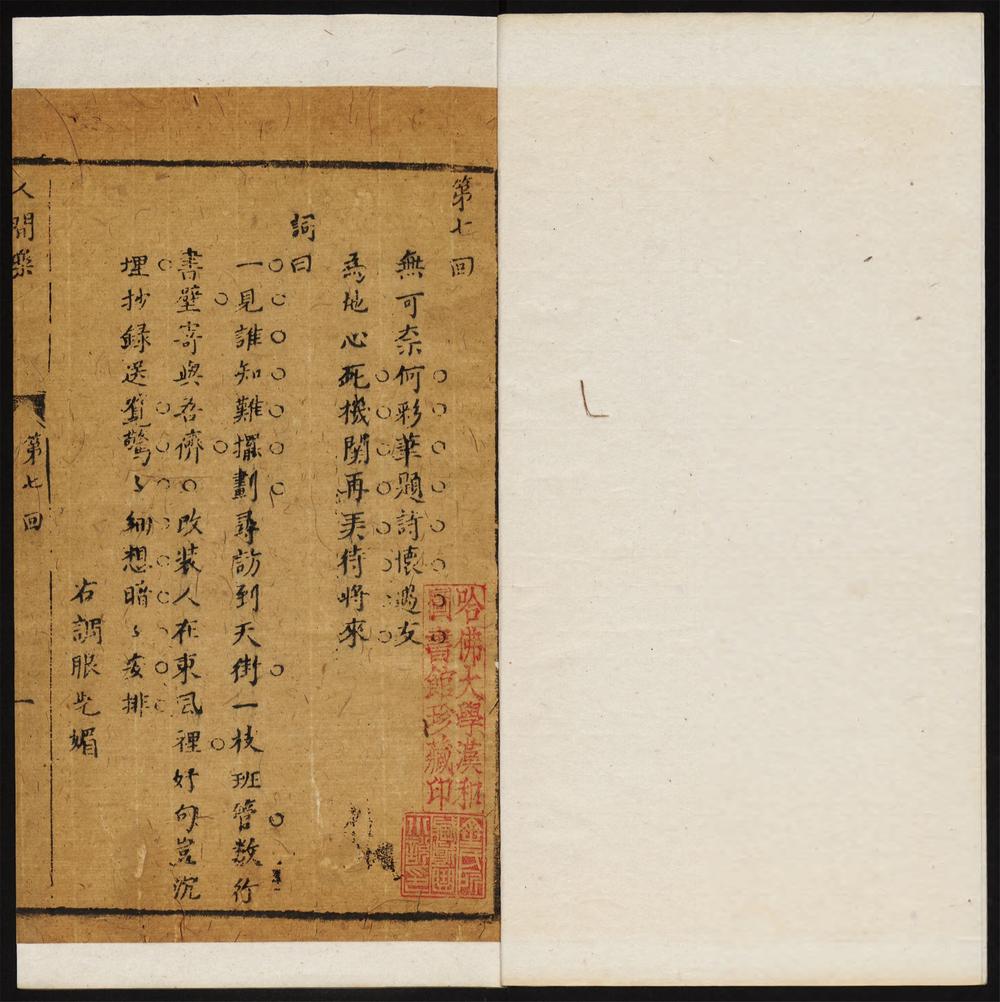 第七回
無可奈何彩筆題詩懷遇友
爲他心死機関再美待將來
詞曰
一見誰知難擺劃尋訪到天街一枝班管数行
書壁寄與吾儕改装人在東風裡好句豈沉
埋抄錄送覽驚〻細想暗〻安排
右調眼児媚
人間樂
第七回
一
哈佛大學漢和
圖書館珍藏印